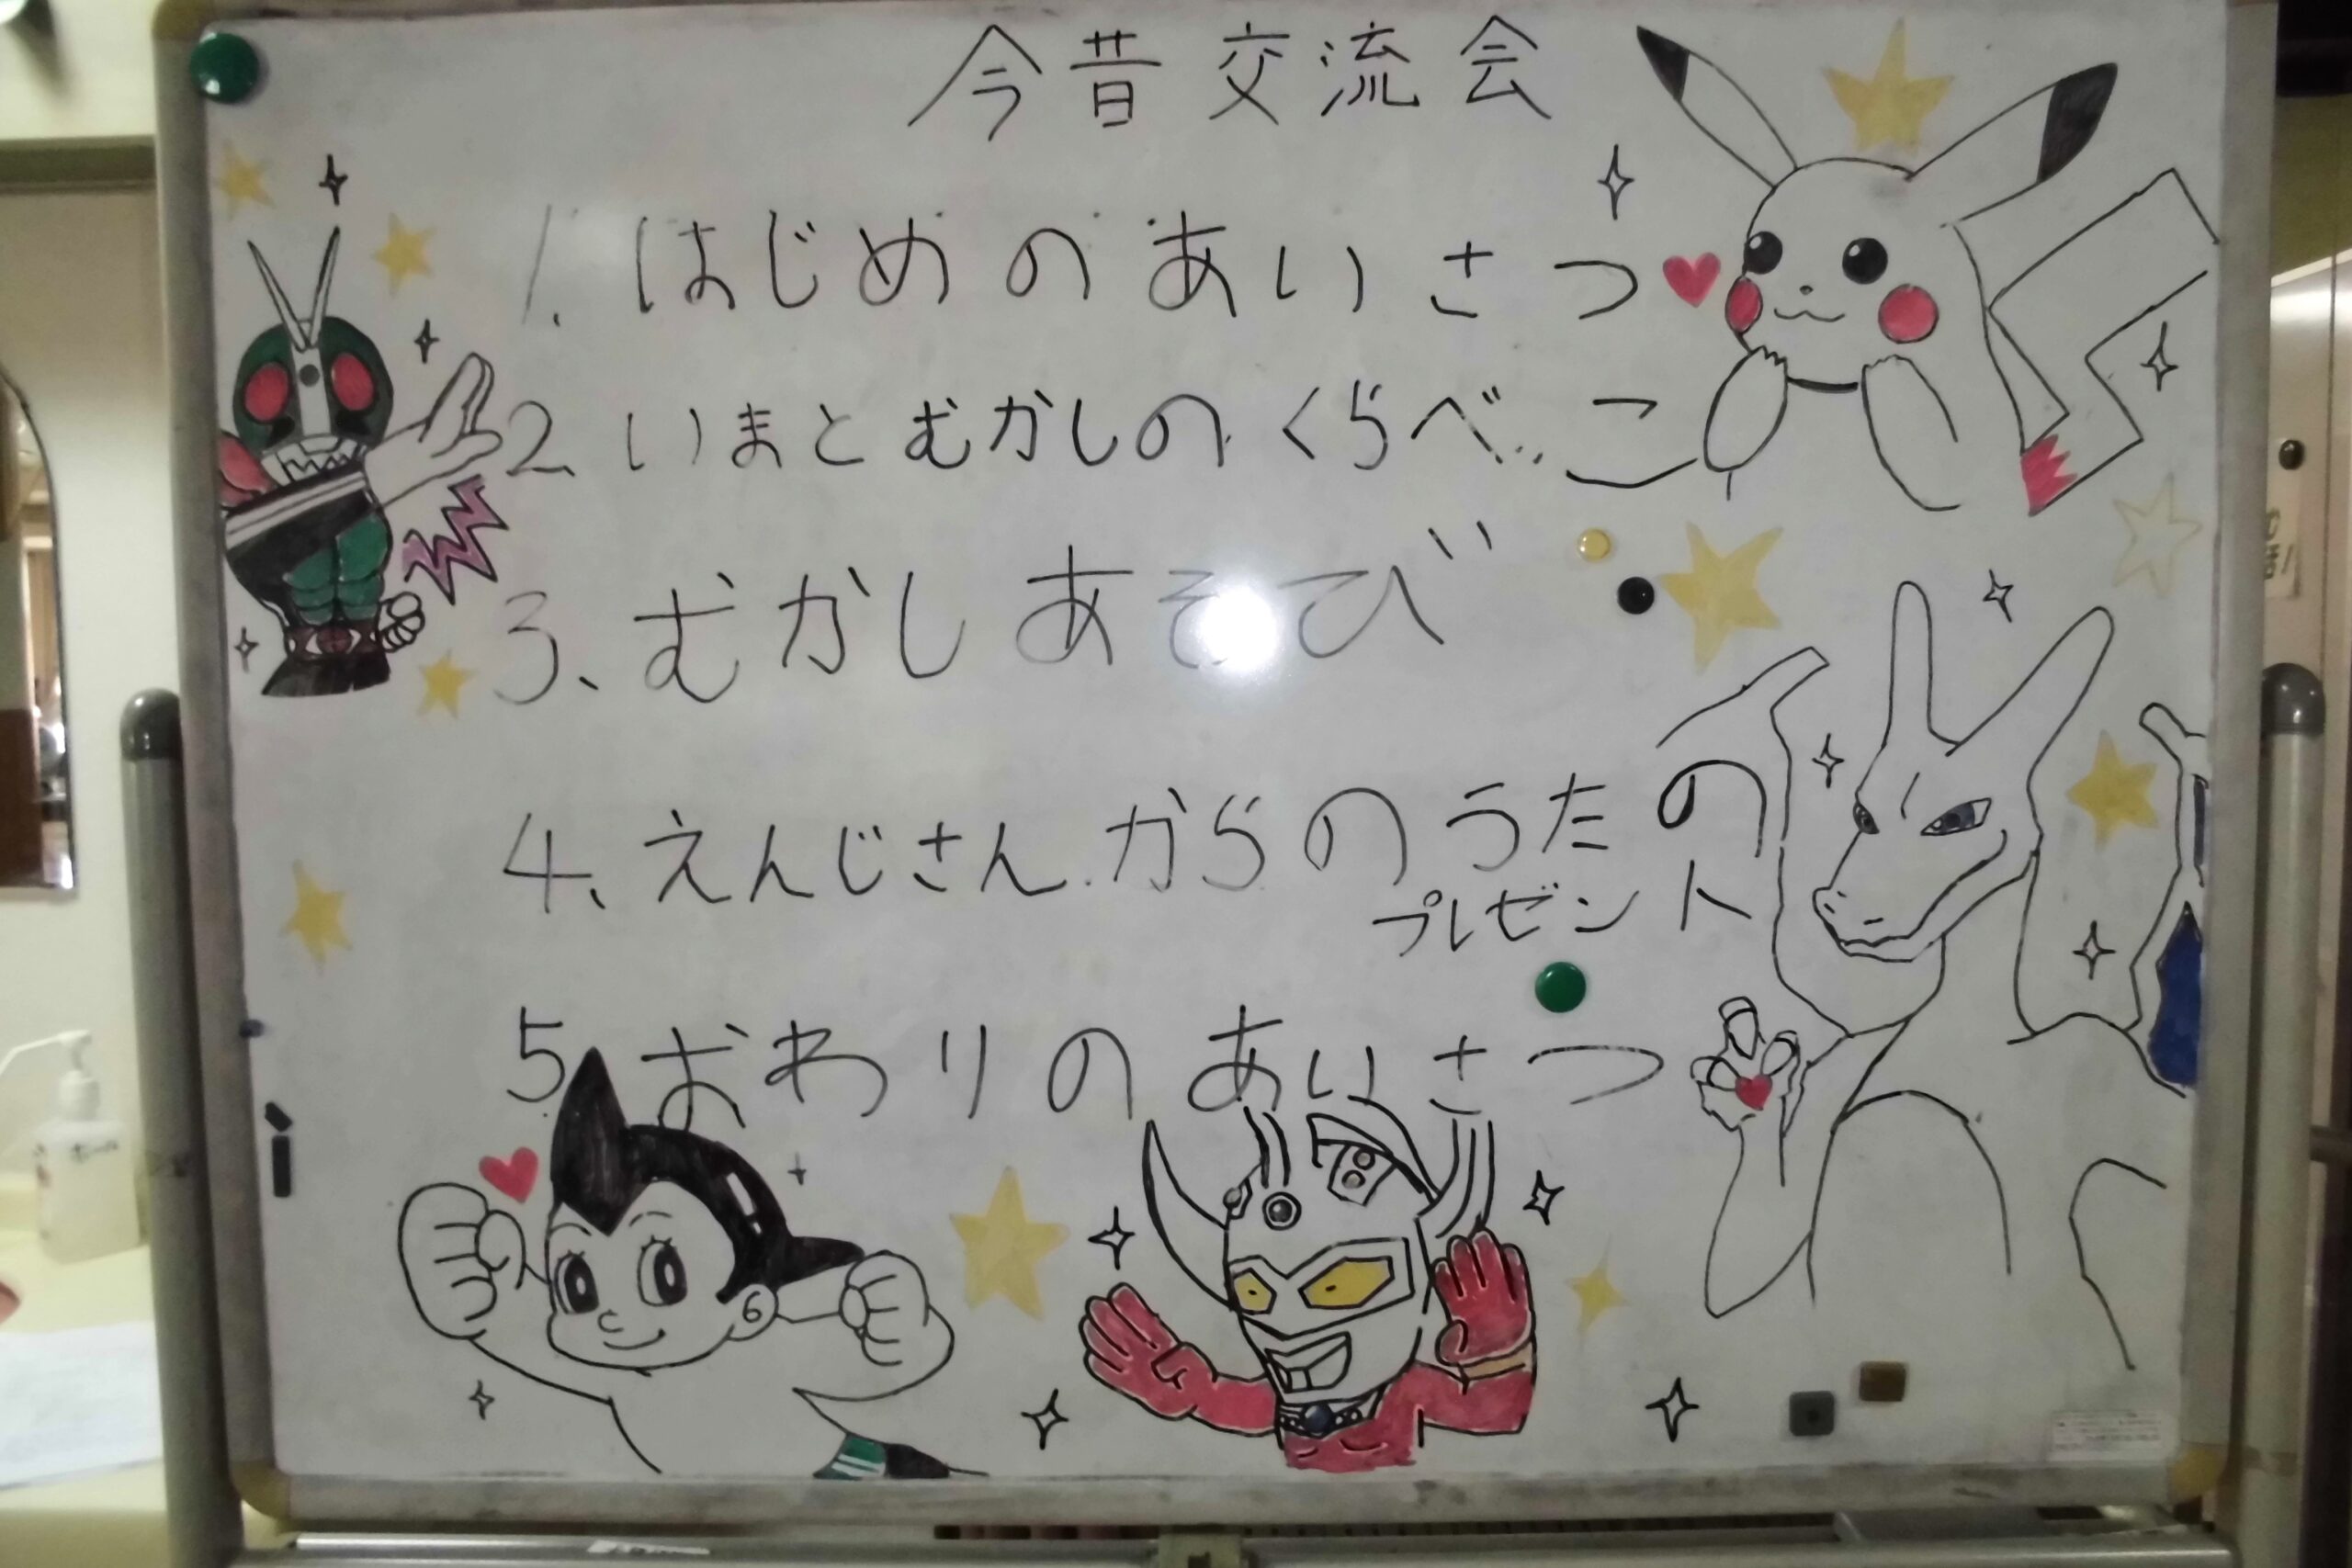 今昔交流会
1. はじめのあいさつ
2. いまとむかしのくらべっこ
3、むかしあそび
4、えんじさんからのうたの
プレゼント
5、おわりのあいさつ
6